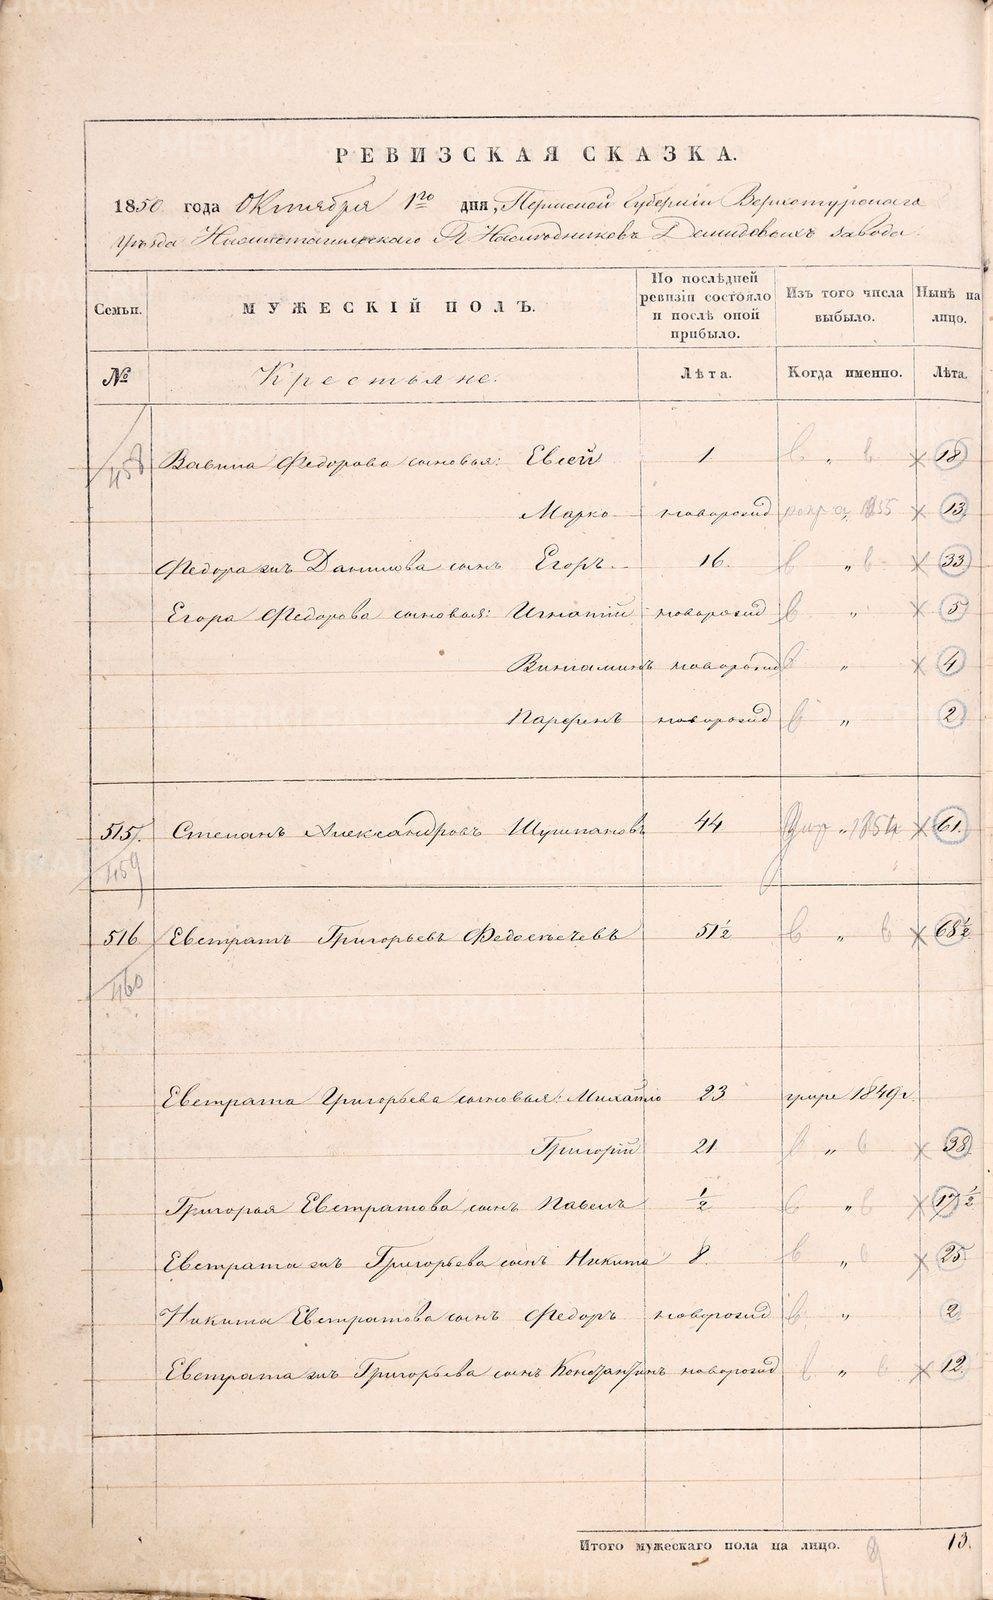 РЕВИЗСКАЯ СКАЗКА.
1850 года Октября 1го дня, Пермской Губернии Верхотурскаго
Уѣзда Нижнетагильскаго Наслѣдниковъ Демидовыхъ завода.
Семьи. МУЖЕСКІЙ ПОЛЪ. По послѣдней ревизіи состояло и послѣ оной прибыло. Изъ того числа выбыло. Нынѣ на лицо.
№ Крестьяне. Лѣта. Когда именно. Лѣта.
458 Вавила Федорова сыновья: Евсей 1 в „ в × 18
Марко новорожд „ 1855 × 13
Федора жъ Данилова сынъ Егоръ 16. в „ в × 33
Егора Федорова сыновья: Игнатій новорожд в „ × 5
Виниаминъ новорожд в „ × 4
Парфенъ новорожд в „ 2
515. Степанъ Александровъ Шушпановъ 44 умр „ 1854 × 61.
459
516 Евстратъ Григорьевъ Федосѣевъ 51½ в „ в × 68½
460
Евстрата Григорьева сыновья: Михайло 23 умре 1849 г.
Григорій 21. в „ в × 38
Григорья Евстратова сынъ Павелъ ½ в „ в × 17½
Евстрата жъ Григорьева сынъ Никита 8. в „ в × 25
Никита Евстратова сынъ Федоръ новорожд в „ 2
Евстрата жъ Григорьева сынъ Константинъ новорожд в „ в × 12.
Итого мужескаго пола на лицо. 13.
METRIKI.GASO-URAL.RU